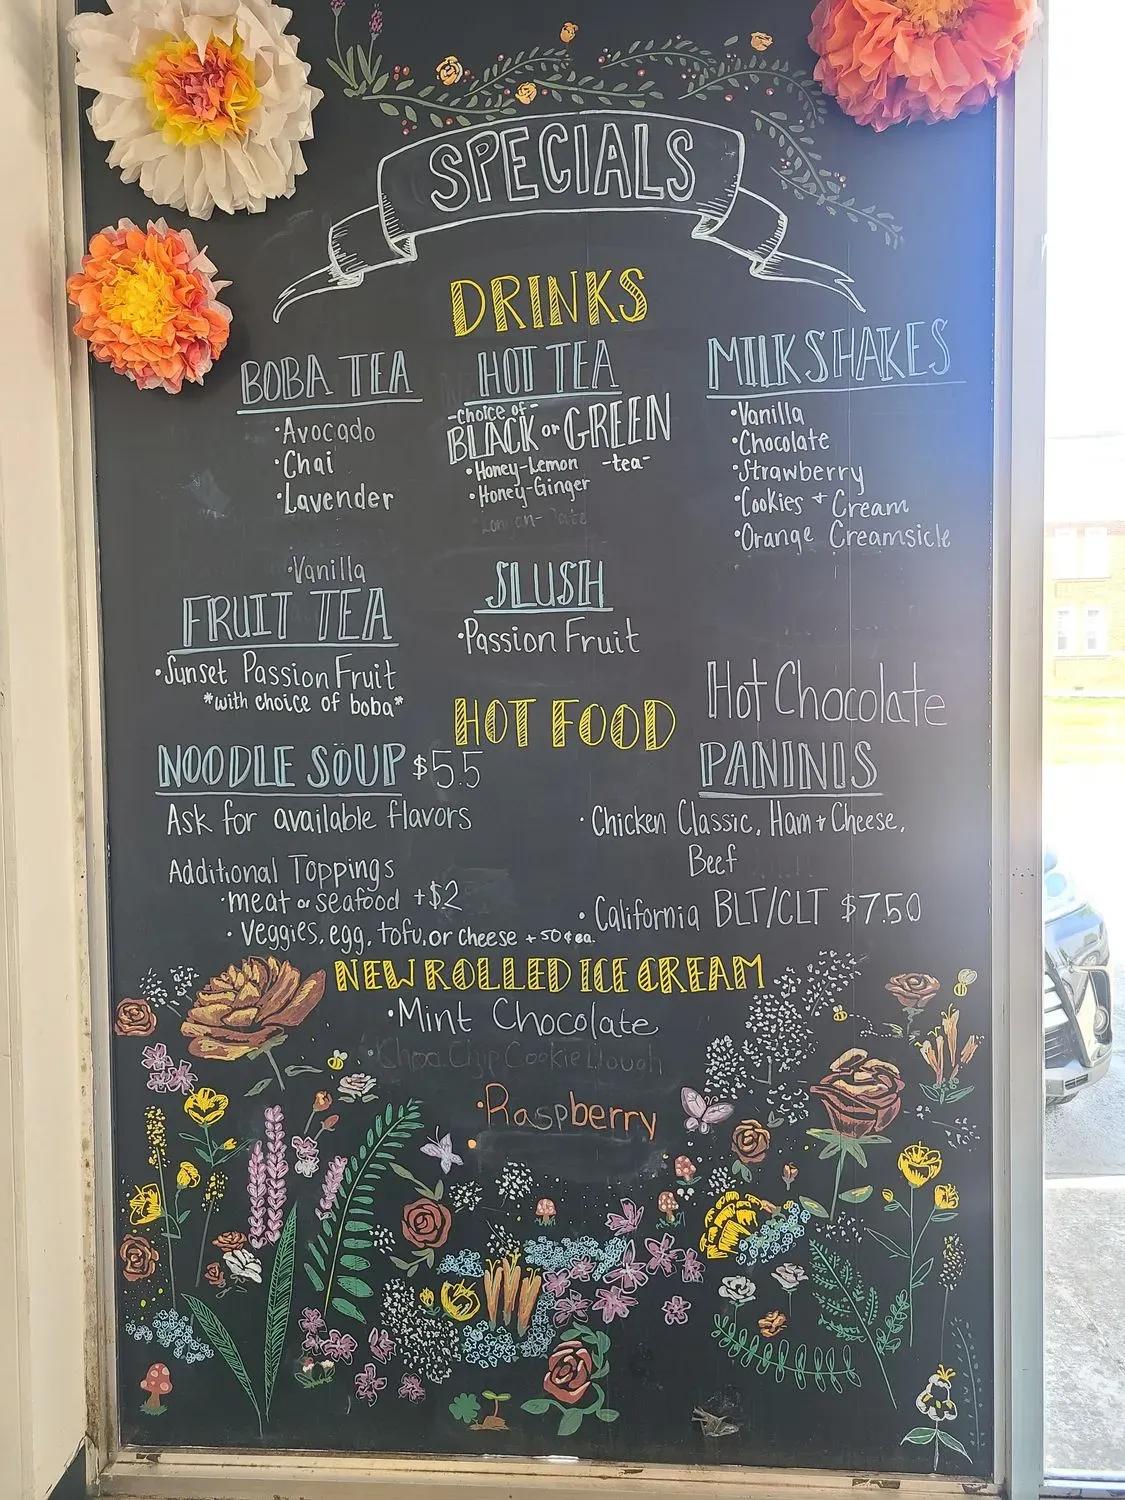 SPECIALS
DRINKS
BOBA TEA
•Avocado
•Chai
•Lavender
•Vanilla
HOT TEA
-choice of-
BLACK or GREEN
-tea-
•Honey-Lemon
•Honey-Ginger
MILKSHAKES
•Vanilla
•Chocolate
•Strawberry
•Cookies + Cream
•Orange Creamsicle
FRUIT TEA
•Sunset Passion Fruit
*with choice of boba*
SLUSH
•Passion Fruit
Hot Chocolate
HOT FOOD
NOODLE SOUP $5.5
Ask for available flavors
Additional Toppings
•meat or seafood +$2
•Veggies, egg, tofu, or cheese + 50¢ ea.
PANINIS
•Chicken Classic, Ham + Cheese,
Beef
•California BLT/CLT $7.50
NEW ROLLED ICE CREAM
•Mint Chocolate
•Choc. Chip Cookie Dough
•Raspberry